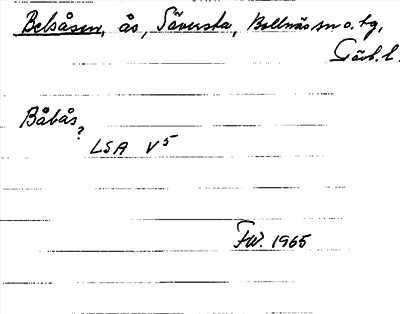 Belsåsen, ås, Säversta, Bollnäs sn o. tg,
Gävl. l.
Båbås
?
LSA V5
FW. 1965